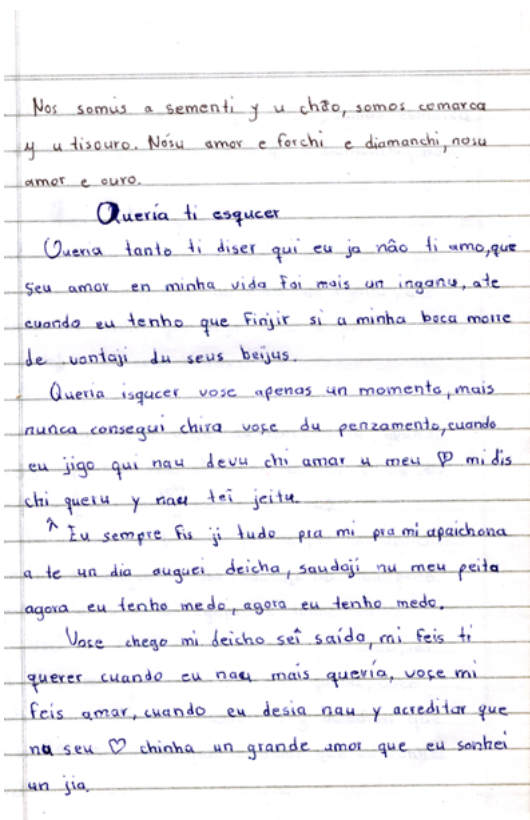 Nos somus a sementi y u chão, somos comarca
y u tisouro. Nósu amor e forchi e diamanchi, nosu
amor e ouro.
Quería ti esqucer
Queria tanto ti diser qui eu ja não ti amo, que
seu amor en minha vida foi mais un inganu, ate
cuando eu tenho que finjir si a minha boca morre
de vontaji du seus beijus.
Queria isqucer vose apenas un momento, mais
nunca consequi chira voçe du penzamento, cuando
eu jigo qui nau devu chi amar u meu ♡ mi dis
chi queru y nau teí jeitu.
Eu sempre fis ji tudo pra mi pra mi apaichona
a te un dia auguei deicha, saudají nu meu peita
agora eu tenho medo, agora eu tenho medo.
Vose chego mi deicho seî saída, mi feis ti
querer cuando eu nau mais quería, voçe mi
feis amar, cuando eu desia nau y acreditar que
na seu ♡ chinha un grande amor que eu sonhei
un jia.